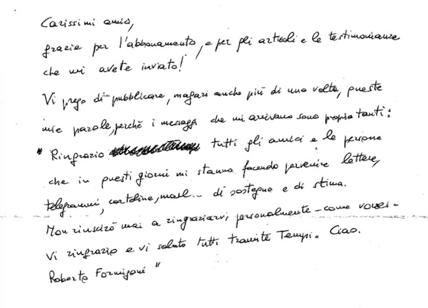 Carissimi amici,
grazie per l'abbonamento, e per gli articoli e le testimonianze
che mi avete inviato!
Vi prego di pubblicare, magari anche più di una volta, queste
mie parole, perché i messaggi che mi arrivano sono proprio tanti:
"Ringrazio tutti gli amici e le persone
che in questi giorni mi stanno facendo pervenire lettere,
telegrammi, cartoline, mail... di sostegno e di stima.
Non riuscirò mai a ringraziarvi personalmente - come vorrei -
Vi ringrazio e vi saluto tutti tramite Tempi. Ciao.
Roberto Formigoni"